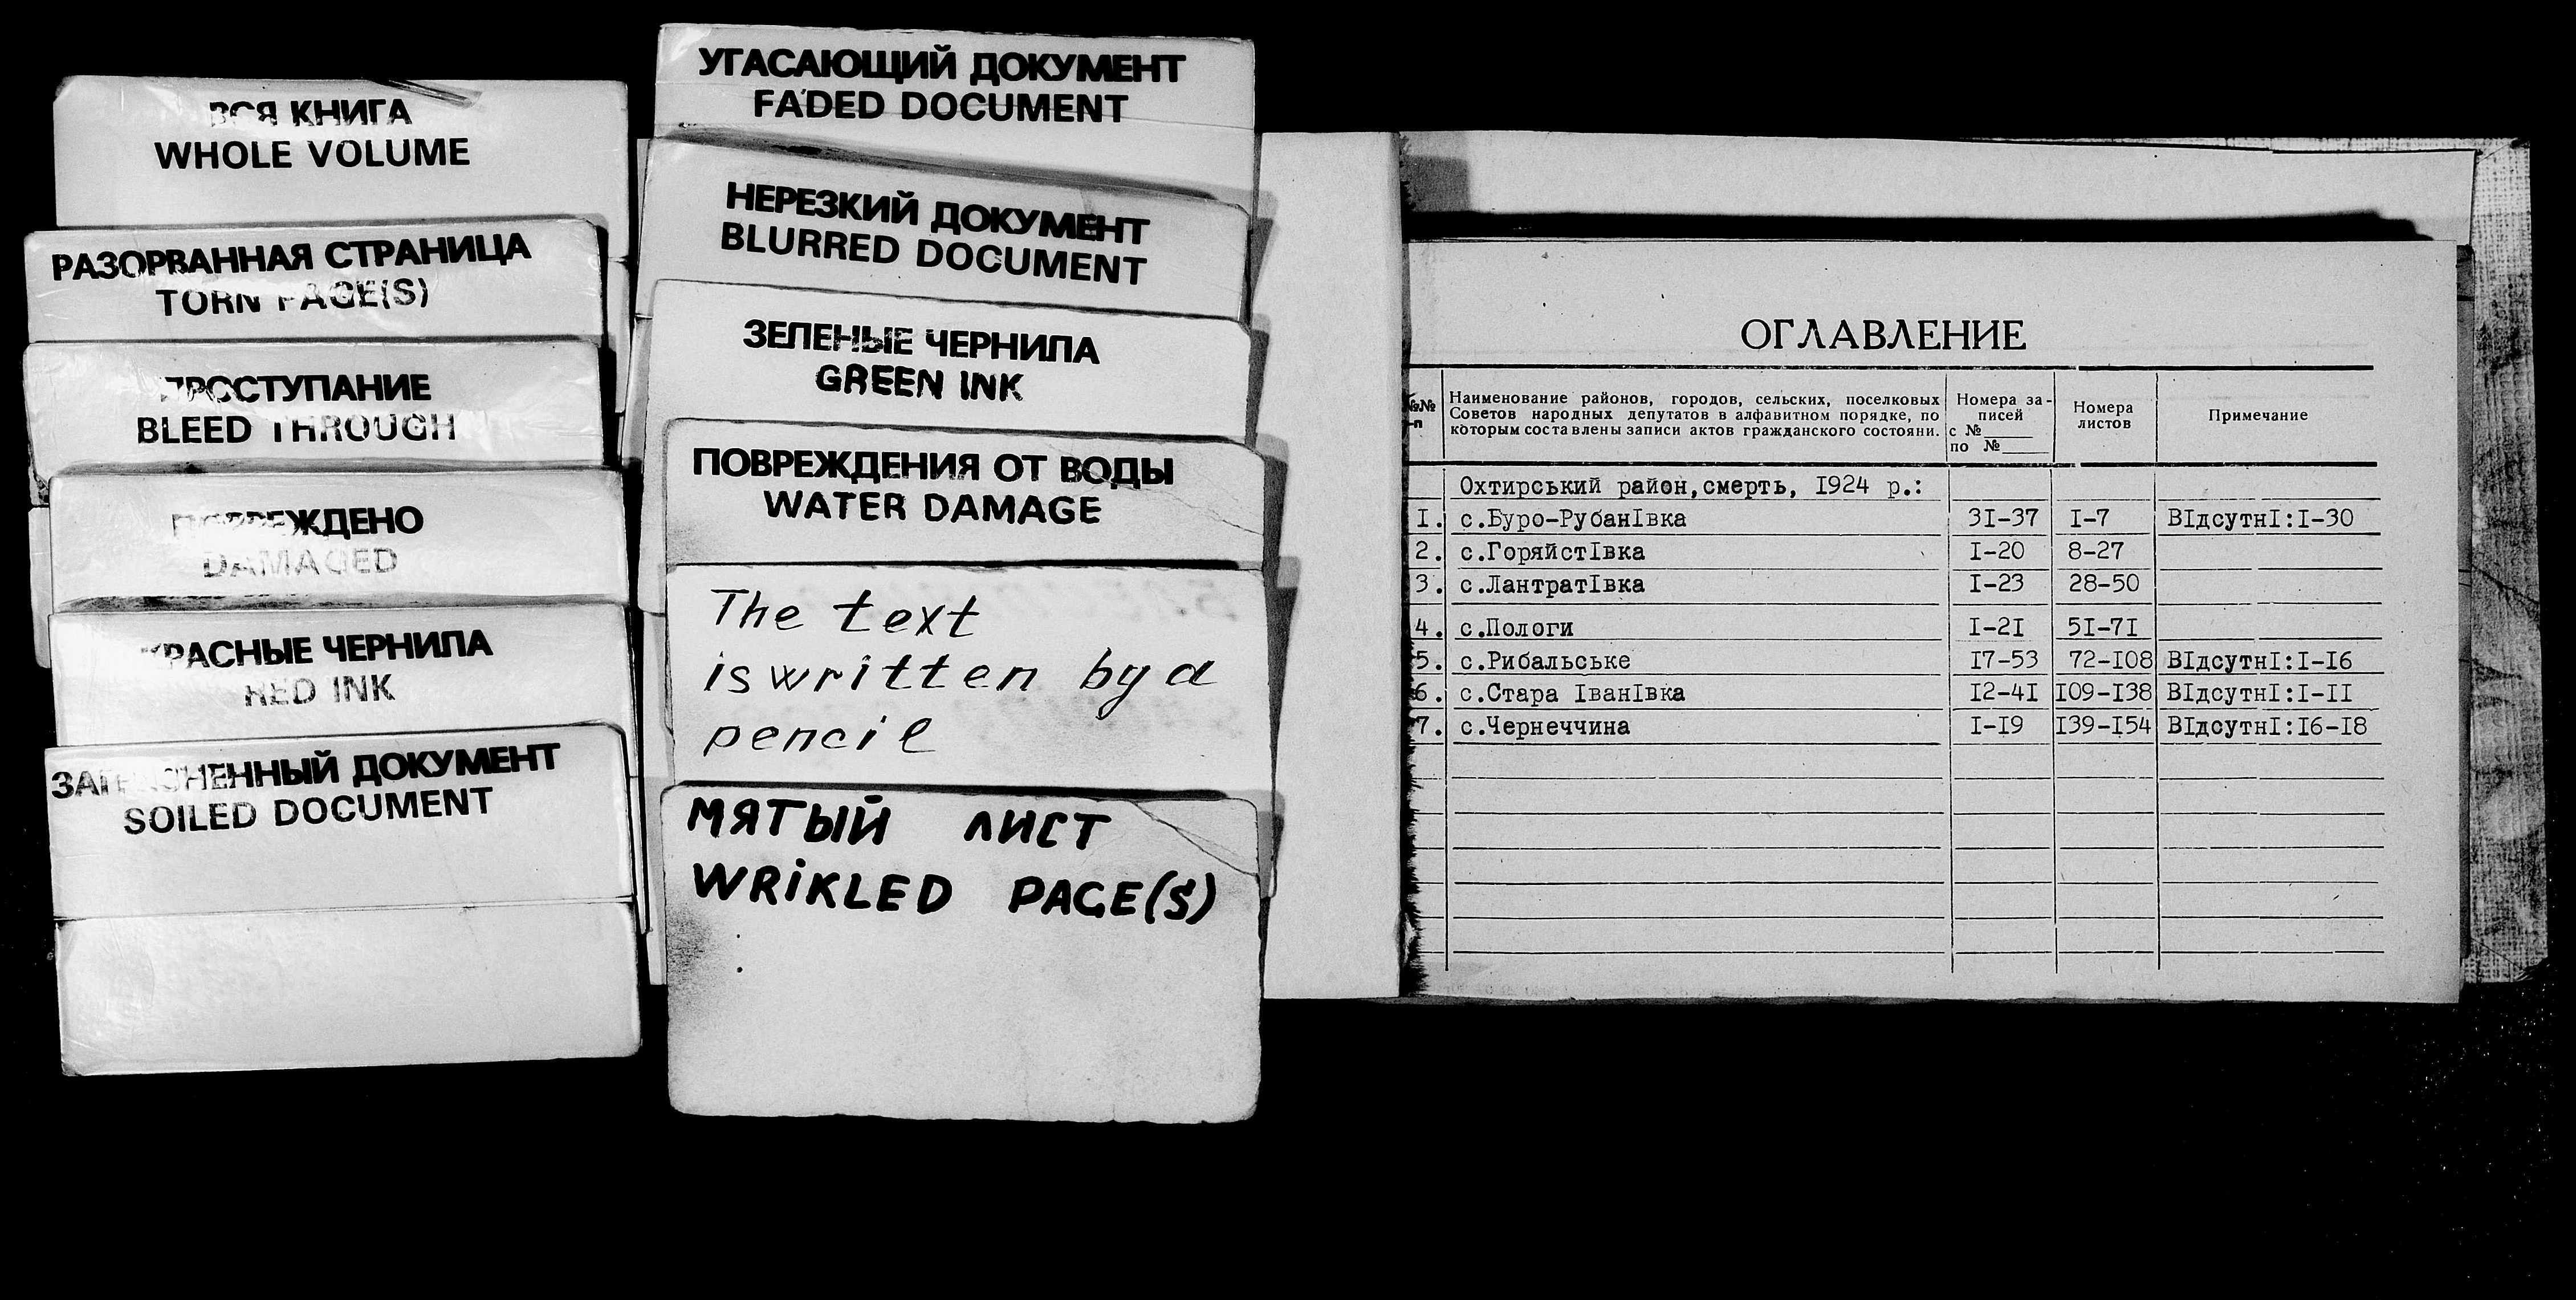 ВСЯ КНИГА
WHOLE VOLUME
РАЗОРВАННАЯ СТРАНИЦА
TORN PAGE(S)
ПРОСТУПАНИЕ
BLEED THROUGH
ПОВРЕЖДЕНО
DAMAGED
КРАСНЫЕ ЧЕРНИЛА
RED INK
ЗАГРЯЗНЕННЫЙ ДОКУМЕНТ
SOILED DOCUMENT
УГАСАЮЩИЙ ДОКУМЕНТ
FADED DOCUMENT
НЕРЕЗКИЙ ДОКУМЕНТ
BLURRED DOCUMENT
ЗЕЛЕНЫЕ ЧЕРНИЛА
GREEN INK
ПОВРЕЖДЕНИЯ ОТ ВОДЫ
WATER DAMAGE
The text
is written by a
pencil
МЯТЫЙ ЛИСТ
WRiKLED PAGE(S)
ОГЛАВЛЕНИЕ
№№
п
Наименование районов, городов, сельских, поселковых
Советов народных депутатов в алфавитном порядке, по
которым составлены записи актов гражданского состояни.
Номера за-
писей
с №____
по №____
Номера
листов
Примечание
Охтирський район,смерть, I924 р.:
I. с.Буро-РубанIвка 3I-37 I-7 ВIдсутнI:I-30
2. с.ГоряйстIвка I-20 8-27
3. с.ЛантратIвка I-23 28-50
4. с.Пологи I-2I 5I-7I
5. с.Рибальське I7-53 72-I08 ВIдсутнI:I-I6
6. с.Стара IванIвка I2-4I I09-I38 ВIдсутнI:I-II
7. с.Чернеччина I-I9 I39-I54 ВIдсутнI:I6-I8